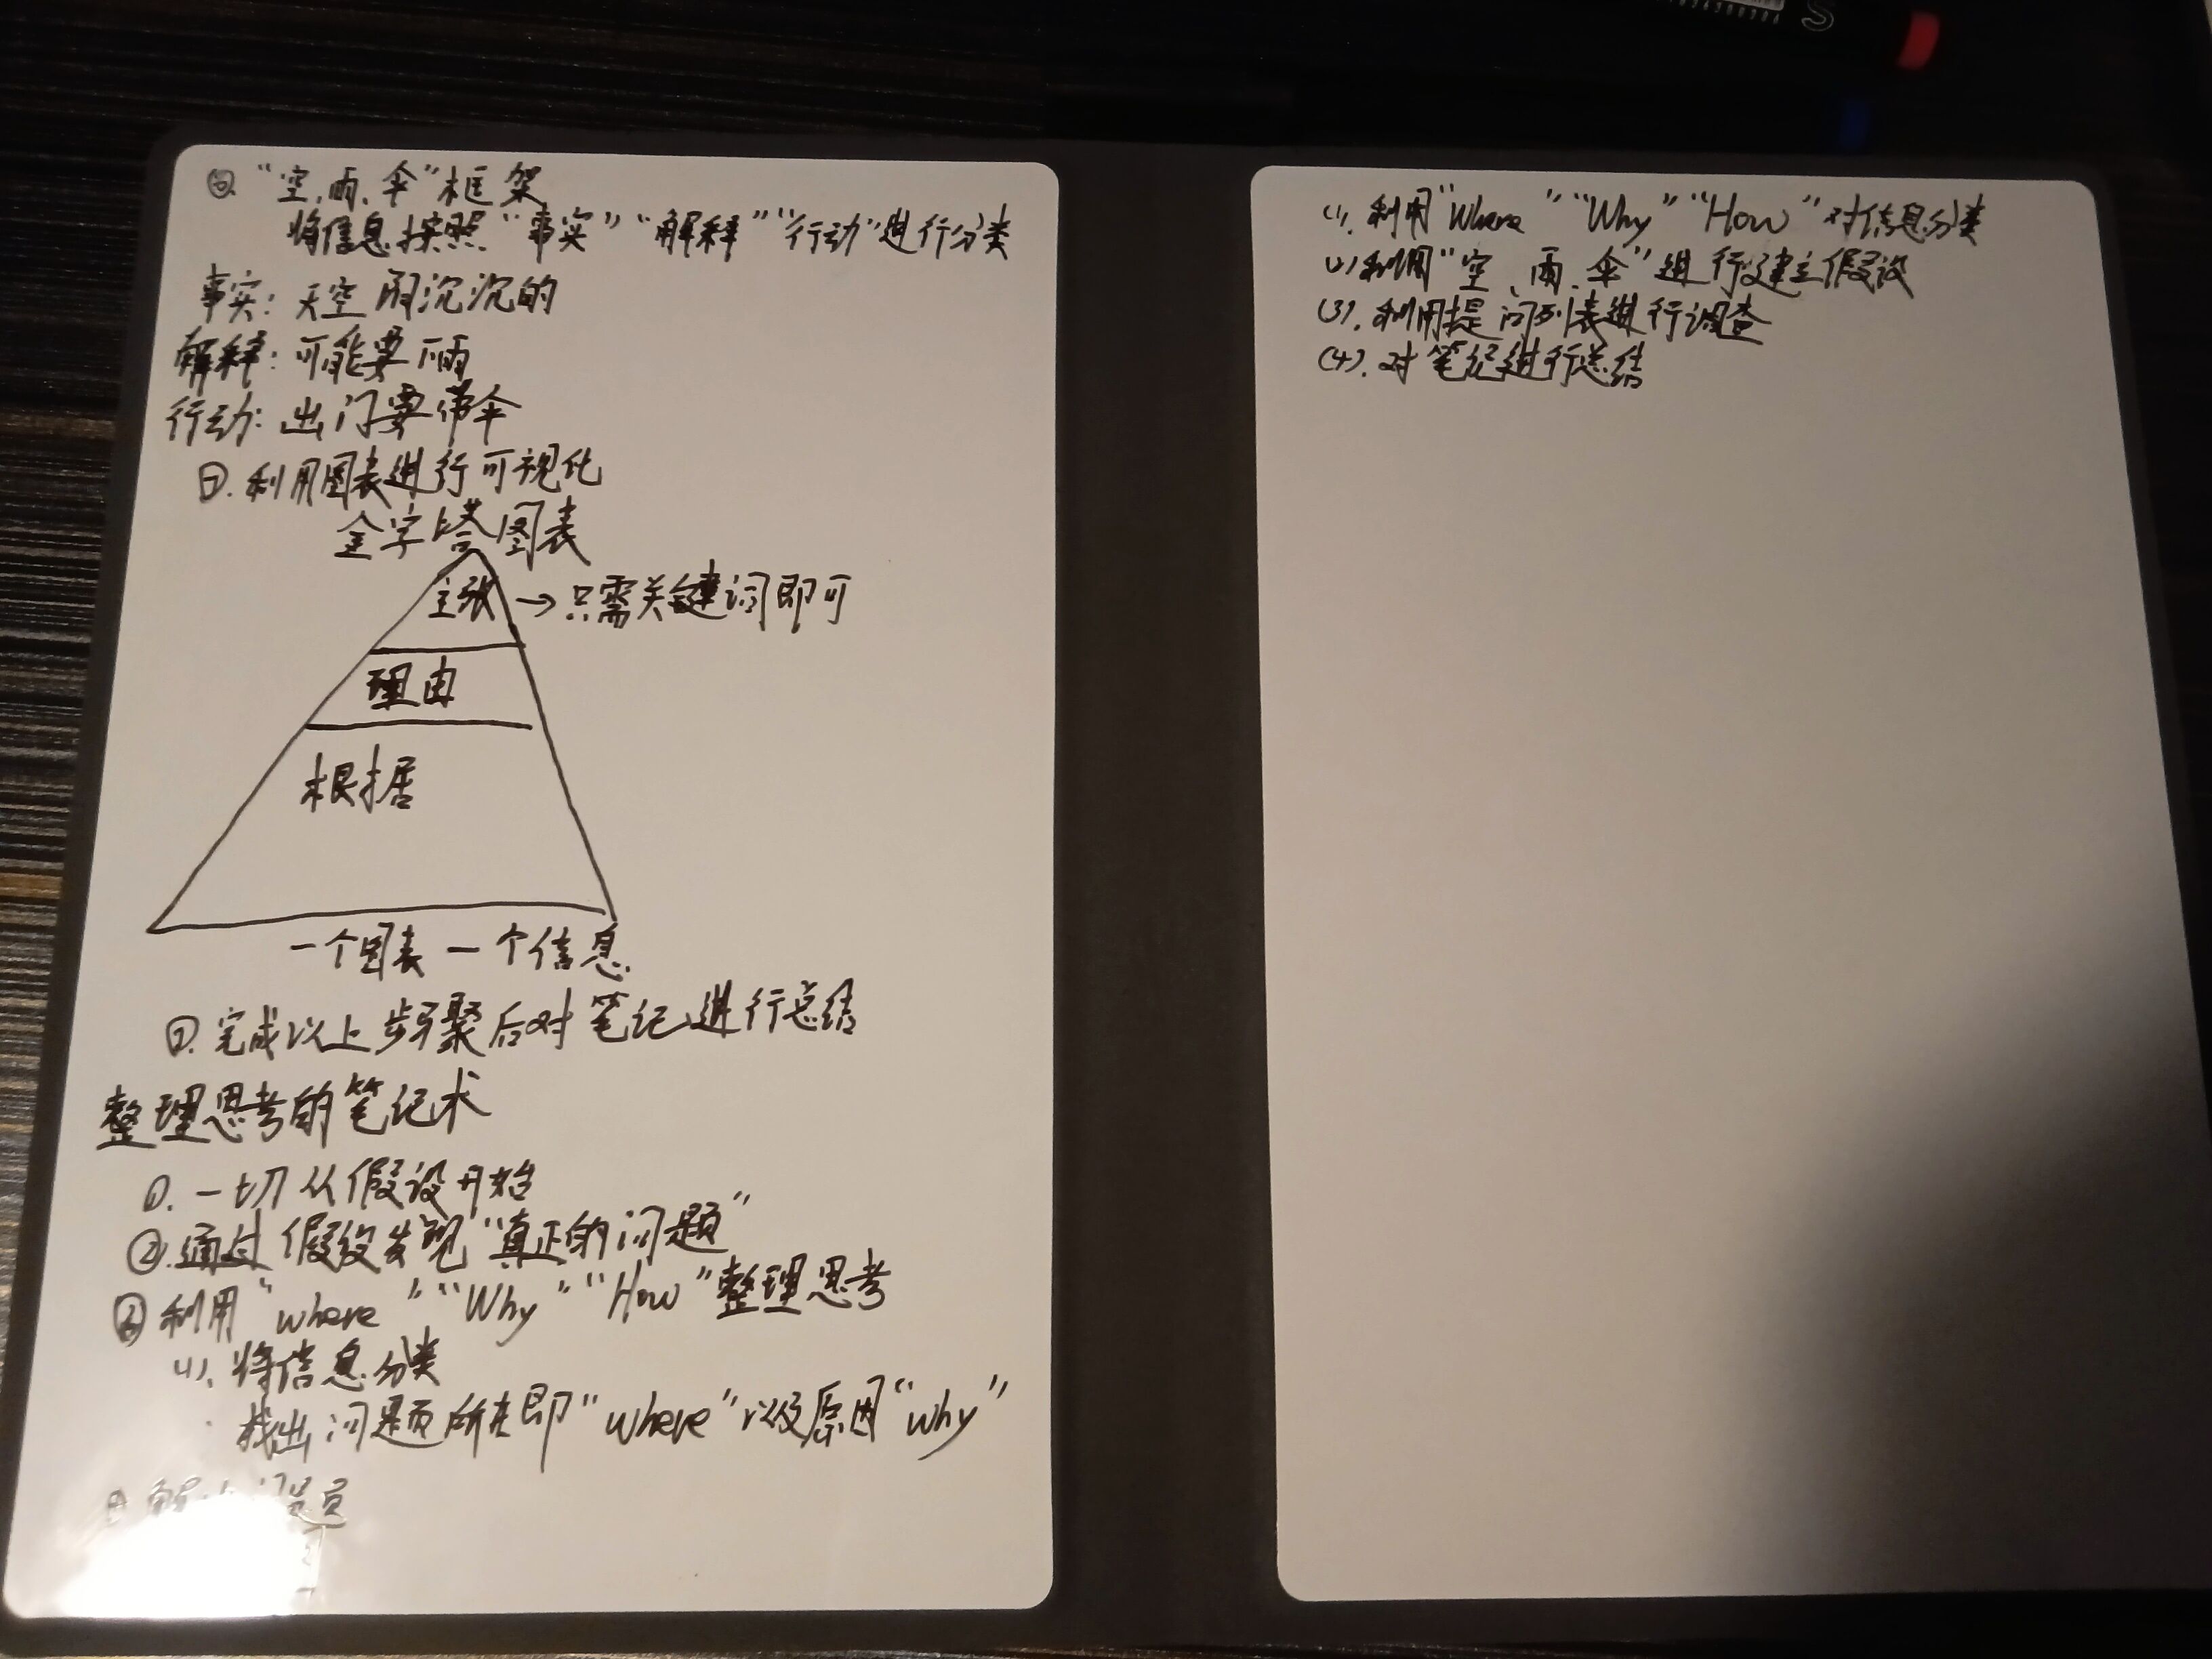 ⑥. “空、雨、伞”框架
将信息按照“事实”“解释”“行动”进行分类
事实：天空阴沉沉的
解释：可能要下雨
行动：出门要带伞
⑦. 利用图表进行可视化
金字塔图表
主张 → 只需关键词即可
理由
根据
一个图表一个信息
完成以上步骤后对笔记进行总结
整理思考的笔记术
①. 一切从假设开始
②. 通过假设发现“真正的问题”
③ 利用“where”“Why”“How”整理思考
(1). 将信息分类
找出问题所在即“where”以及原因“why”
(1). 利用“Where”“Why”“How”对信息分类
(2) 利用“空、雨、伞”进行建立假设
(3). 利用提问列表进行调查
(4). 对笔记进行总结